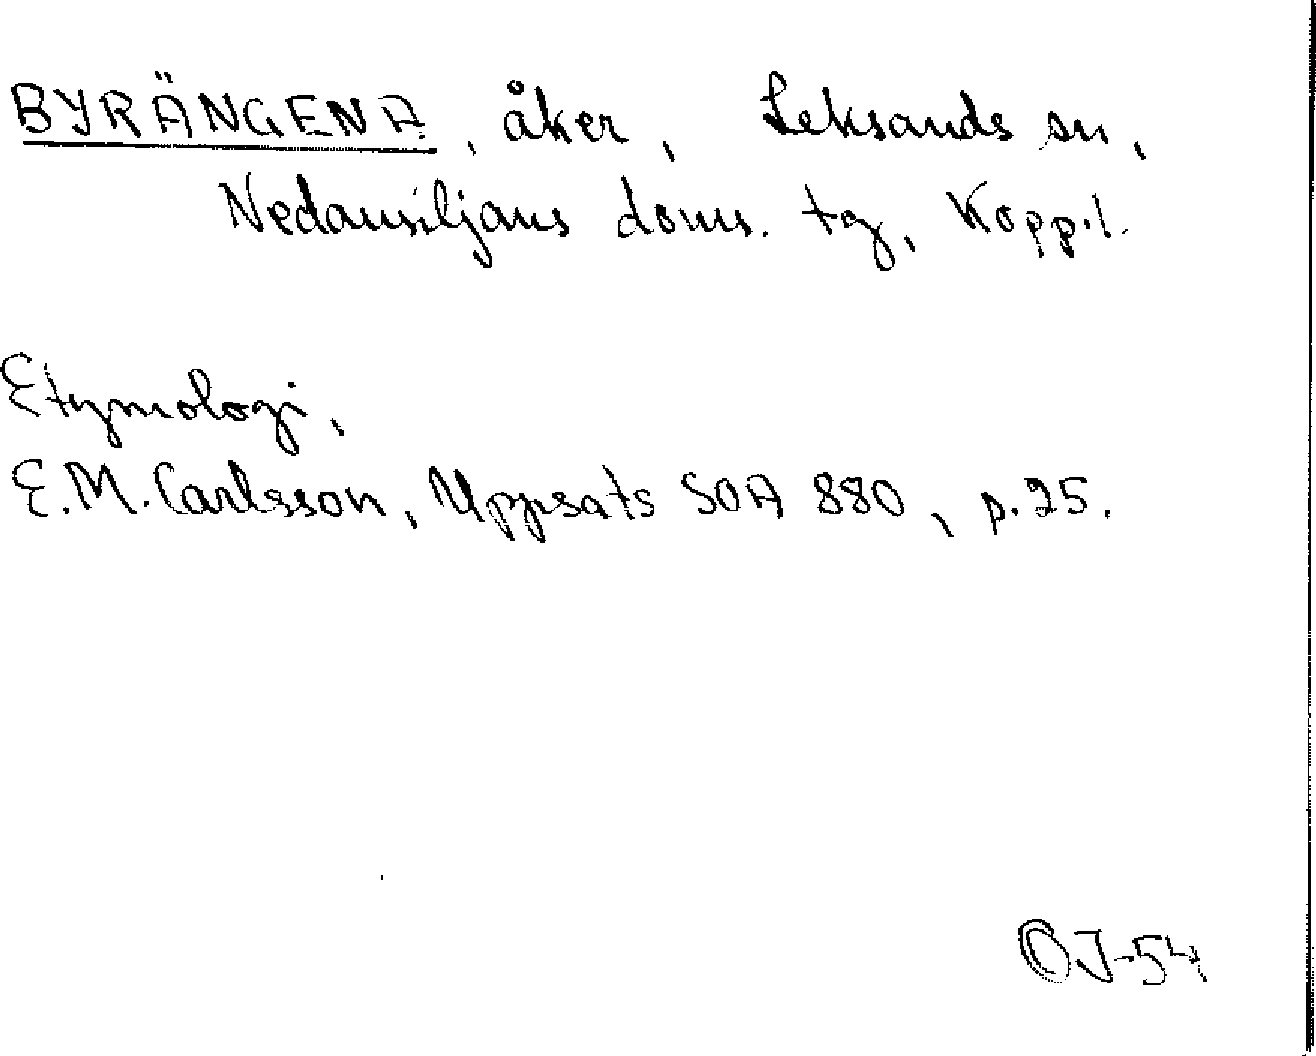 BYRÄNGENA, åker, Leksands sn,
Nedansiljans doms. tg, Kopp.l.
Etymologi,
E.M. Carlsson, Uppsats SOA 880, p. 25.
OJ-54